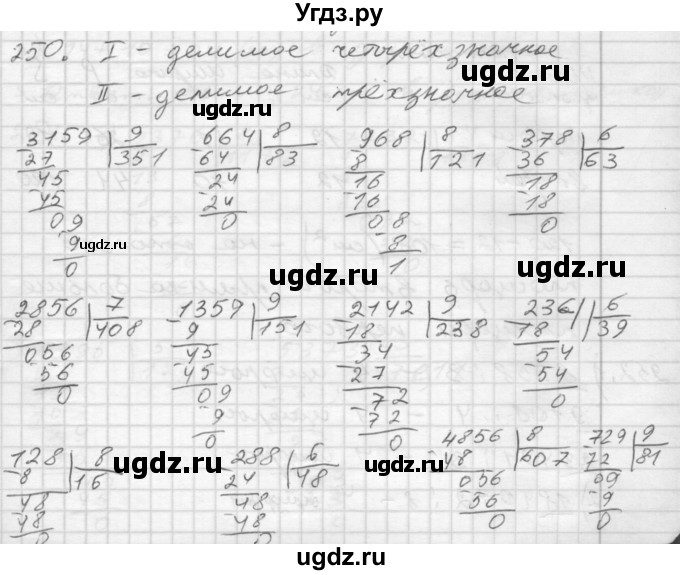 Угдз.ру
250. I – делимое четырёхзначное
II – делимое трёхзначное
3159 | 9 664 | 8 968 | 8 378 | 6
27 351 64 83 8 121 36 63
45 24 16 18
45 24 16 18
09 0 08 0
9 8
0 1
2856 | 7 1359 | 9 2142 | 9 236 | 6
28 408 9 151 18 238 18 39
056 45 34 54
56 45 27 54
0 09 72 0
9 72
0 0
128 | 8 288 | 6 4856 | 8 729 | 9
8 16 24 48 48 607 72 81
48 48 056 09
48 48 56 9
0 0 0 0
ugdz.ru
ugdz.ru
ugdz.ru
ugdz.ru
ugdz.ru
ugdz.ru
ugdz.ru
ugdz.ru
ugdz.ru
ugdz.ru
ugdz.ru
ugdz.ru
ugdz.ru
ugdz.ru
Угдз.ру